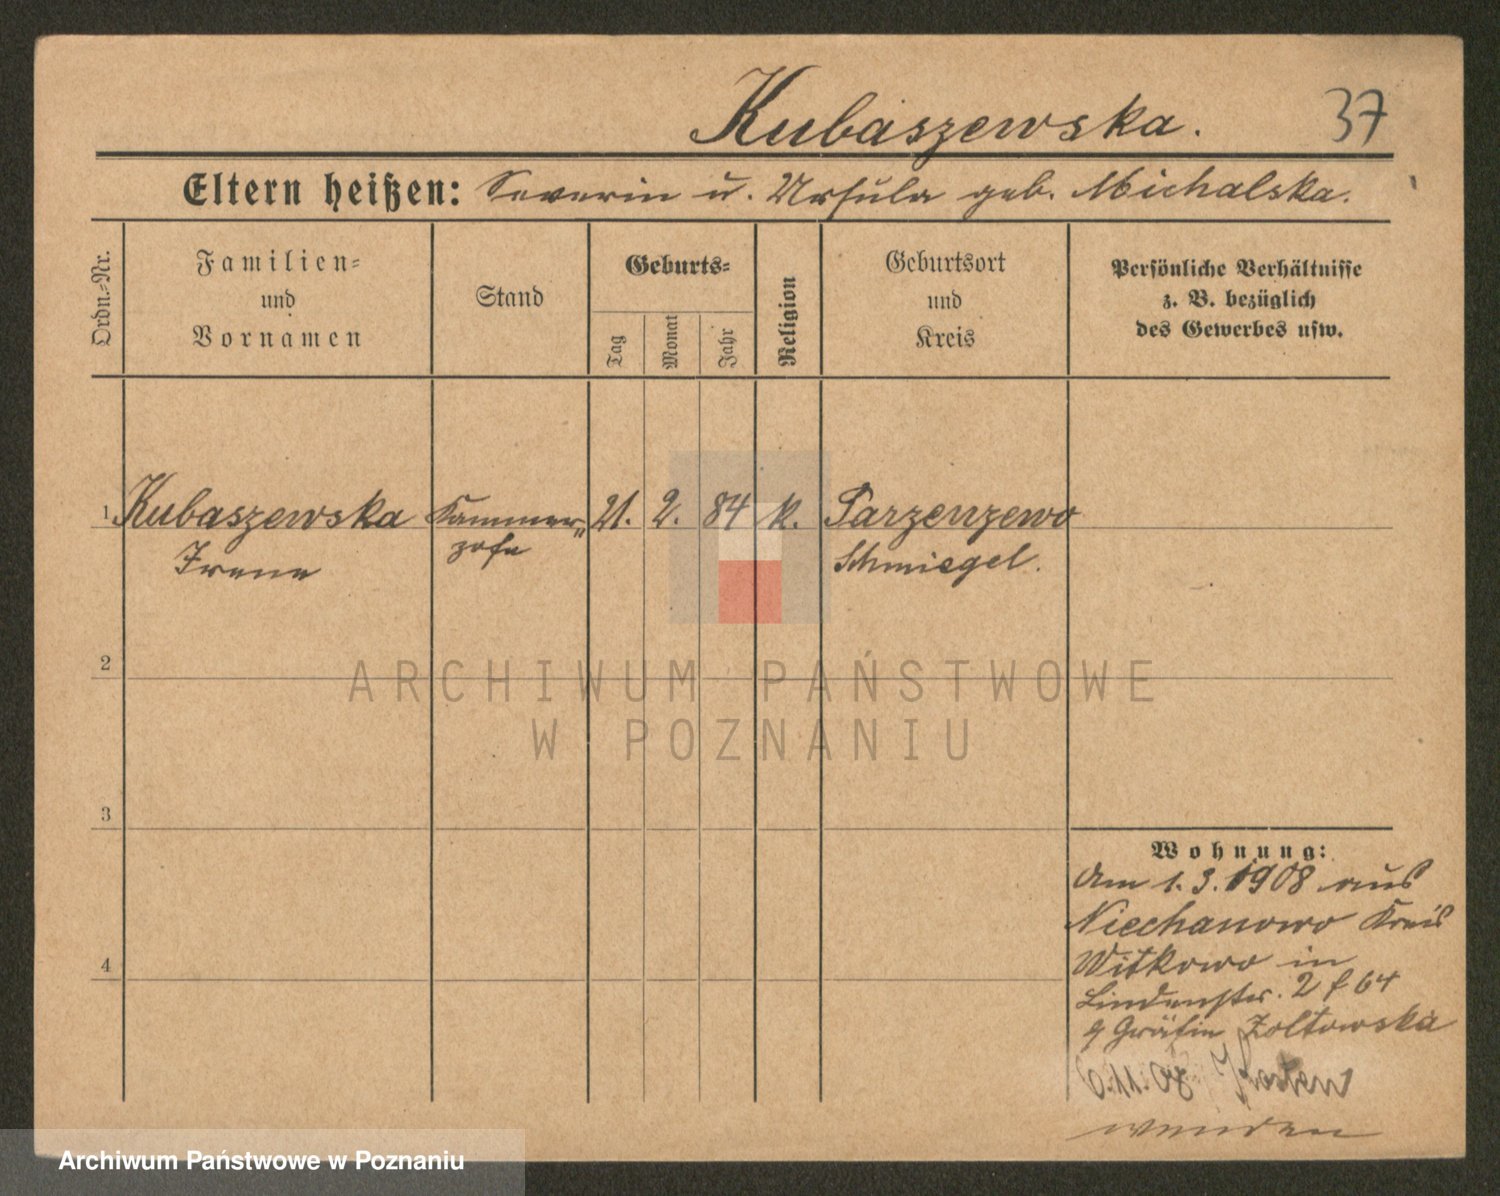 Kubaszewska. 37
Eltern heißen: Severin u. Ursula geb. Michalska.
Ordn.-Nr.
Familien-
und
Vornamen
Stand
Geburts-
Tag
Monat
Jahr
Religion
Geburtsort
und
Kreis
Persönliche Verhältnisse
z. B. bezüglich
des Gewerbes usw.
1 Kubaszewska Kammer- 21. 2. 84 k. Parzenzewo
Irene zofe Schmiegel.
2
ARCHIWUM PAŃSTWOWE
W POZNANIU
3
Wohnung:
Am 1.3.1908 aus
Niechanowo Kreis
4
Witkowo in
Lindenstr. 2 f 64
Gräfin Zoltowska
6.11.08
wenden
Archiwum Państwowe w Poznaniu